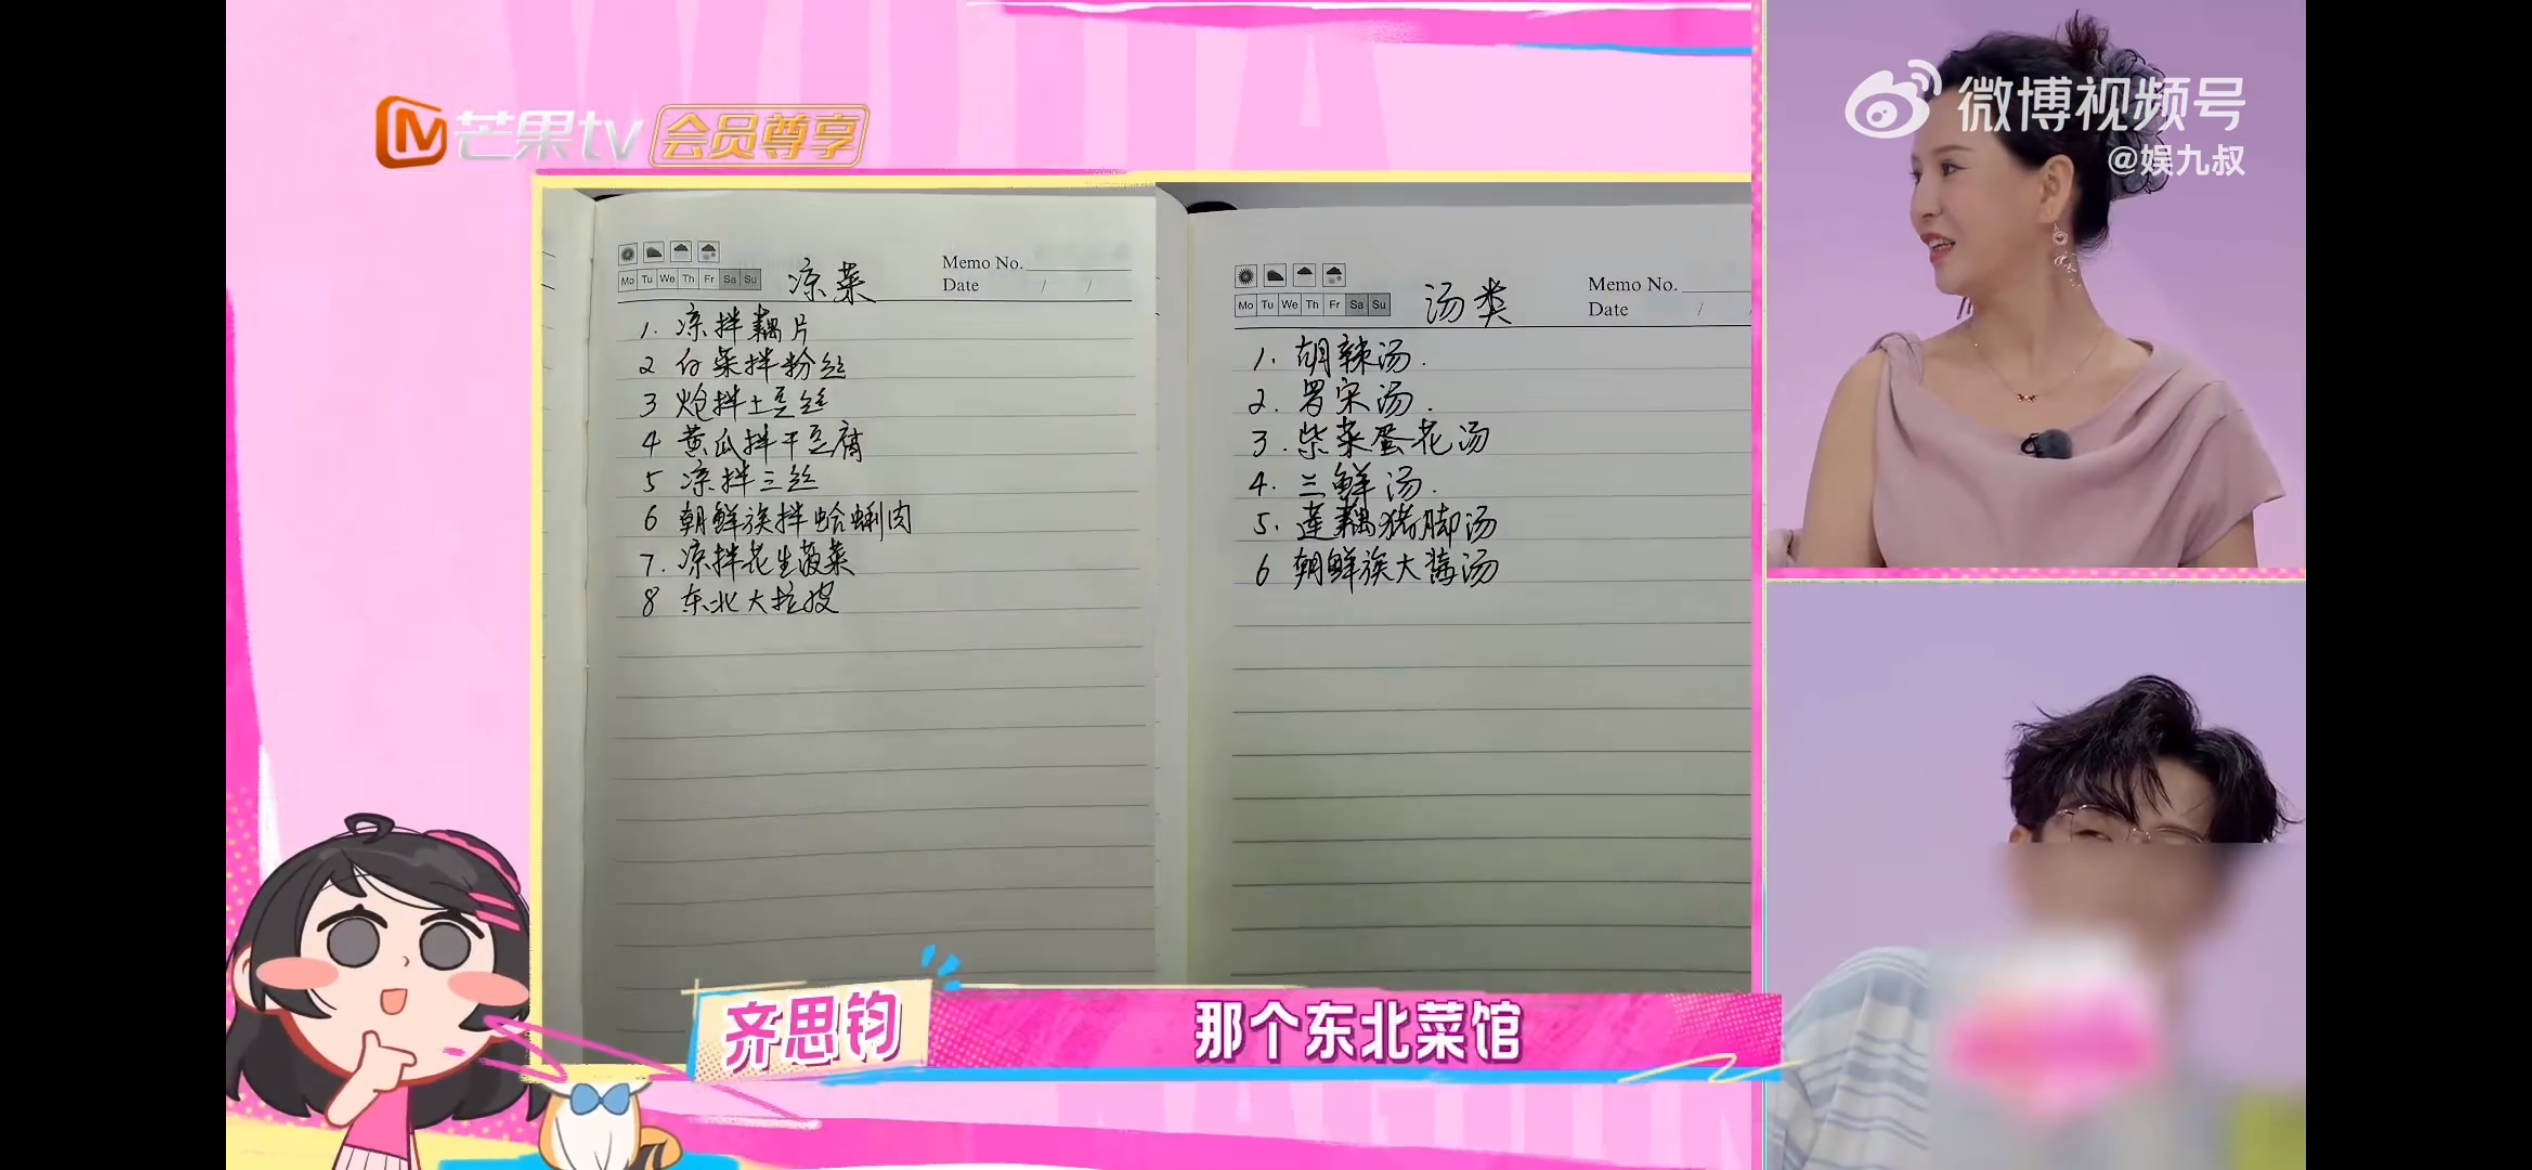 芒果tv 会员尊享
微博视频号
@娱九叔
Mo Tu We Th Fr Sa Su
凉菜
Memo No.
Date / /
1. 凉拌藕片
2 白菜拌粉丝
3 炝拌土豆丝
4 黄瓜拌干豆腐
5 凉拌三丝
6 朝鲜族拌蛤蜊肉
7. 凉拌花生菠菜
8 东北大拉皮
Mo Tu We Th Fr Sa Su
汤类
Memo No.
Date /
1. 胡辣汤.
2. 罗宋汤.
3. 紫菜蛋花汤
4. 三鲜汤.
5. 莲藕猪脚汤
6 朝鲜族大酱汤
齐思钧
那个东北菜馆